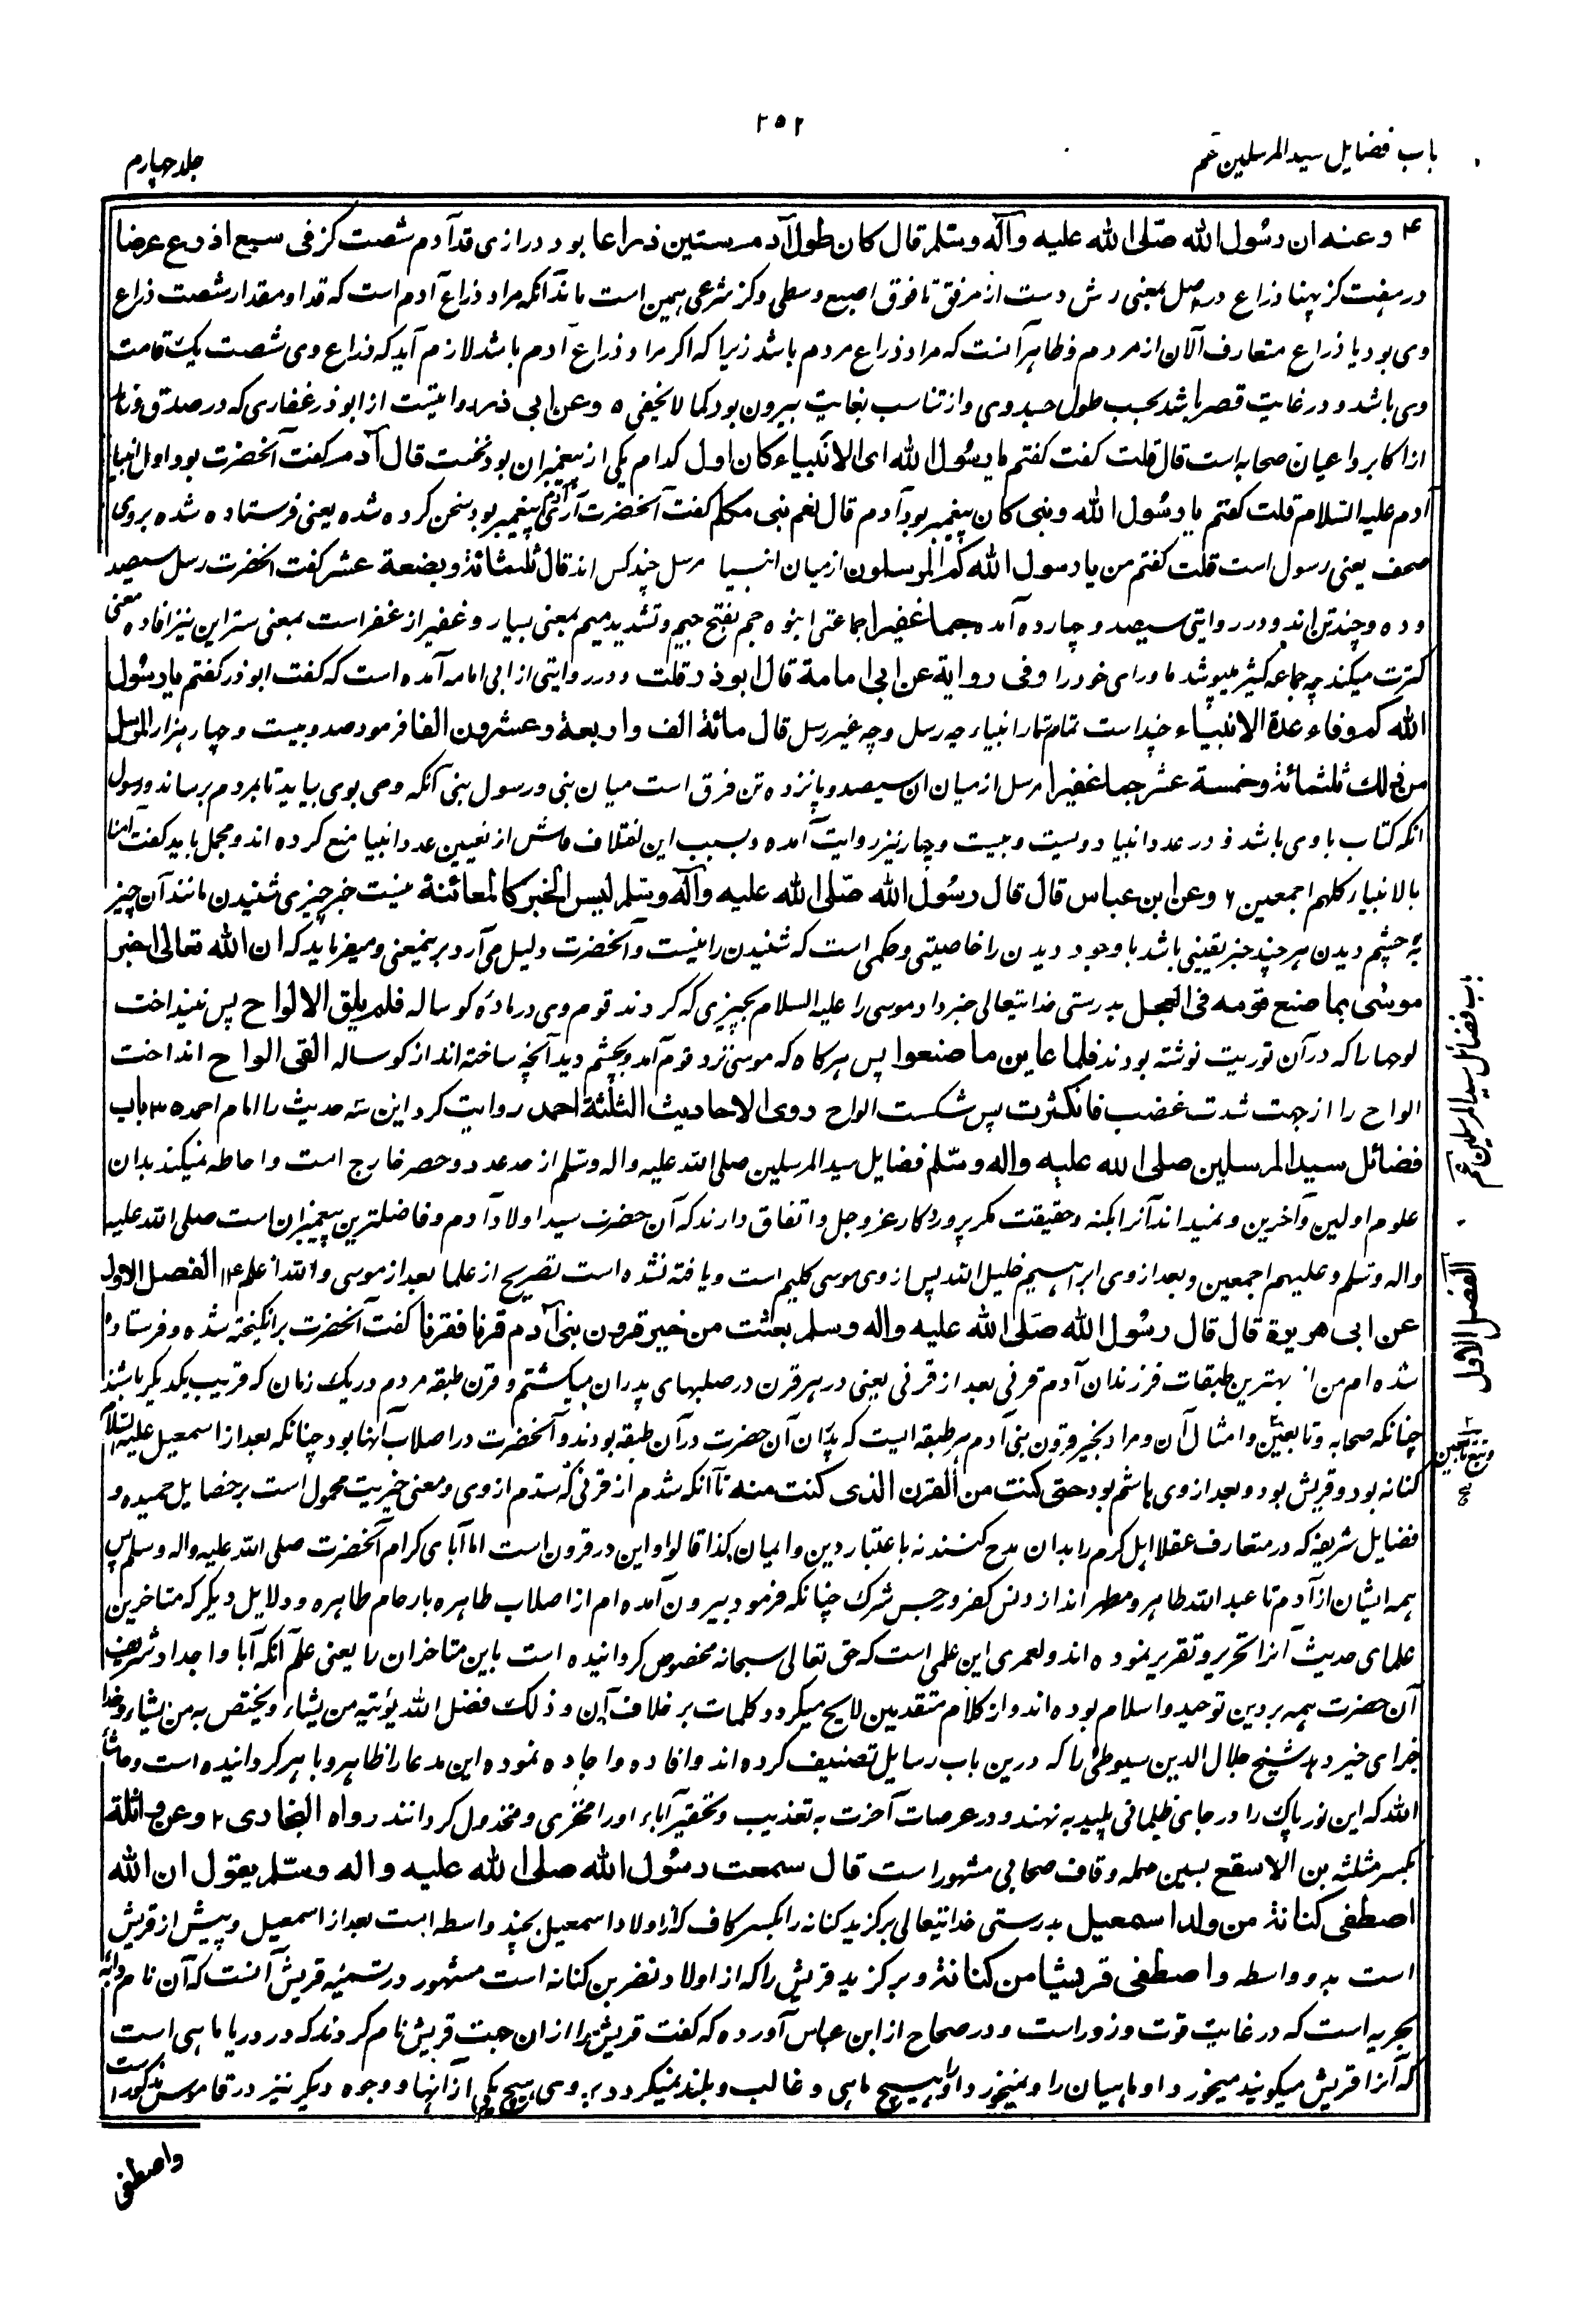 ۲۵۲
باب فضایل سید المرسلین صلعم
جلد چهارم
۴ وعنه ان رسول الله صلى الله عليه وآله وسلم قال كان طول آدم ستين ذراعا بود درازی قد آدم شصت کز فی سبع اذرع عرضا
در هفت کز پهنا ذراع در اصل بمعنی رش دست از مرفق تا فوق اصبع وسطی و کز شرعی همین است ماند آنکه مراد ذراع آدم است که قد او مقدار شصت ذراع
وی بود یا ذراع متعارف الآن از مردم و ظاهر آنست که مراد ذراع مردم باشد زیرا که اکر مراد ذراع آدم باشد لازم آید که ذراع وی شصت یک قامت
وی باشد و در غایت قصر باشد بحسب طول جسد وی و از تناسب بغایت بیرون بود کما لا یخفی ۵ وعن ابی ذر روایتست از ابو ذر غفاری که در صدق و زهد
از اکابر و اعیان صحابه است قال قلت کفت کفتم یا رسول الله ای الانبیاء کان اول کدام یکی از پیغمبران بود نخست قال آدم کفت آنحضرت بود اول انبیا
آدم علیه السلام قلت کفتم یا رسول الله ونبی کان پیغمبر بود آدم قال نعم نبی مکلم کفت آنحضرت آری آدم پیغمبر بود سخن کرده شده یعنی فرستاده شده بروی
صحف یعنی رسول است قلت کفتم من یا رسول الله کم المرسلون از میان انبیا مرسل چند کس اند قال ثلثمائة وبضعة عشر کفت آنحضرت رسل سیصد
و ده و چند تن اند و در روایتی سیصد و چارده آمده جما غفیرا جماعتی انبوه جم بفتح جیم و تشدید میم بمعنی بسیار و غفیر از غفر است بمعنی ستر این نیز افاده معنی
کثرت میکند چه جماعه کثیر میپوشد ماورای خود را وفی روایة عن ابی امامة قال ابو ذر قلت و در روایتی از ابی امامه آمده است که کفت ابو ذر کفتم یا رسول
الله کم وفاء عدة الانبیاء چند است تمام شمار انبیاء چه رسل و چه غیر رسل قال مائة الف واربعة وعشرون الفا فرمود صد و بیست و چهار هزار الرسل
من ذلك ثلثمائة وخمسة عشر جما غفیرا مرسل از میان ان سیصد و پانزده تن فرق است میان نبی و رسول نبی آنکه وحی بوی بیاید تا بمردم برساند و رسول
آنکه کتاب باوی باشد و در عدد انبیا دویست و بیست و چهار نیز روایت آمده و بسبب این اختلاف فاش از تعیین عدد انبیا منع کرده اند و مجمل باید کفت آمنا
بالانبیاء کلهم اجمعین ۶ وعن ابن عباس قال قال رسول الله صلى الله عليه وآله وسلم لیس الخبر کالمعائنة نیست خبر چیزی شنیدن مانند آن چیز
به چشم دیدن هر چند خبر یقینی باشد با وجود دیدن را خاصیتی و حکمی است که شنیدن را نیست و آنحضرت دلیل می آرد برینمعنی و میفرماید که ان الله تعالی اخبر
موسی بما صنع قومه فی العجل بدرستی خدایتعالی خبر داد موسی را علیه السلام بچیزی که کردند قوم وی در ماده کوساله فلم یلق الالواح پس نینداخت
لوحها را که در آن توریت نوشته بودند فلما عاین ما صنعوا پس هرکاه که موسی نزد قوم آمد و بچشم دید آنچه ساخته اند از کوساله القی الواح انداخت
الواح را از جهت شدت غضب فانکسرت پس شکست الواح روی الاحادیث الثلثة احمد روایت کرد این سه حدیث را امام احمد ۳۵ باب
فضائل سید المرسلین صلی الله علیه واله وسلم فضایل سید المرسلین صلی الله علیه واله وسلم از حد عدد و حصر خارج است و احاطه نمیکند بدان
علوم اولین و آخرین و نمیداند آنرا بکنه و حقیقت مکر پروردکار عز و جل و اتفاق دارند که آن حضرت سید اولاد آدم و فاضلترین پیغمبران است صلی الله علیه
واله وسلم و علیهم اجمعین و بعد از وی ابراهیم خلیل الله پس از وی موسی کلیم است و یافته نشده است تصریح از علما بعد از موسی والله اعلم الفصل الاول
عن ابی هریرة قال قال رسول الله صلی الله علیه واله وسلم بعثت من خیر قرون بنی آدم قرنا فقرنا کفت آنحضرت برانکیخته شده و فرستاده
شده ام من از بهترین طبقات فرزندان آدم قرنی بعد از قرنی یعنی در هر قرن در صلبهای پدران میکشتم و قرن طبقه مردم در یک زمان که قریب یکدیکر باشند
چنانکه صحابه و تابعین و امثال آن و مراد بخیر قرون بنی آدم هر طبقه ایست که پدران آن حضرت در آن طبقه بودند و آنحضرت در اصلاب آنها بود چنانکه بعد از اسمعیل علیه السلام
کنانه بود و قریش بود و بعد از وی هاشم بود حتی کنت من القرن الذی کنت منه تا آنکه شدم از قرنی که شدم از وی و معنی خیریت محمول است بر خصایل حمیده و
فضایل شریفه که در متعارف عقلا اهل کرم را بدان مدح کنند نه باعتبار دین و ایمان کذا قالوا و این در قرون است اما آبای کرام آنحضرت صلی الله علیه واله وسلم پس
همه ایشان از آدم تا عبد الله طاهر و مطهر اند از دنس کفر و رجس شرک چنانکه فرمود بیرون آمده ام از اصلاب طاهره بارحام طاهره و دلایل دیکر که متاخرین
علمای حدیث آنرا تحریر و تقریر نموده اند و لعمری این علمی است که حق تعالی سبحانه مخصوص کردانیده است باین متاخران را یعنی علم آنکه آبا و اجداد شریف
آن حضرت همه بر دین توحید و اسلام بوده اند و از کلام متقدمین لایح میکردد کلمات بر خلاف آن و ذلك فضل الله یؤتیه من یشاء ویختص به من یشاء و خدا
جزای خیر دهد شیخ جلال الدین سیوطی را که درین باب رسایل تصنیف کرده اند و افاده و اجاده نموده این مدعا را ظاهر و باهر کردانیده است و حاشا
الله که این نور پاک را در جای ظلمانی پلید به نهند و در عرصات آخرت به تعذیب و تحقیر آباء او را مخزی و مخذول کردانند رواه البخاری ۲ وعن واثلة
بکسر مثلثه بن الاسقع بسین مهمله و قاف صحابی مشهور است قال سمعت رسول الله صلی الله علیه واله وسلم یقول ان الله
اصطفی کنانة من ولد اسمعیل بدرستی خدایتعالی برکزید کنانه را بکسر کاف که از اولاد اسمعیل بچند واسطه است بعد از اسمعیل و پیش از قریش
است بدو واسطه واصطفی قریشا من کنانة و برکزید قریش را که از اولاد نضر بن کنانه است مشهور در تسمیه قریش آنست که آن نام دابه
بحریه است که در غایت قوت و زور است و در صحاح از ابن عباس آورده که کفت قریش را از ان جهت قریش نام کردند که در دریا ماهی است
که آنرا قریش میکویند میخورد او ماهیان را و نمیخورد او را هیچ ماهی و غالب و بلند نمیکردد بر وی هیچ یکی از آنها و وجوه دیکر نیز در قاموس مذکور است
باب فضائل سید المرسلین صلعم
الفصل الاول
و تبع تابعین
واصطفی